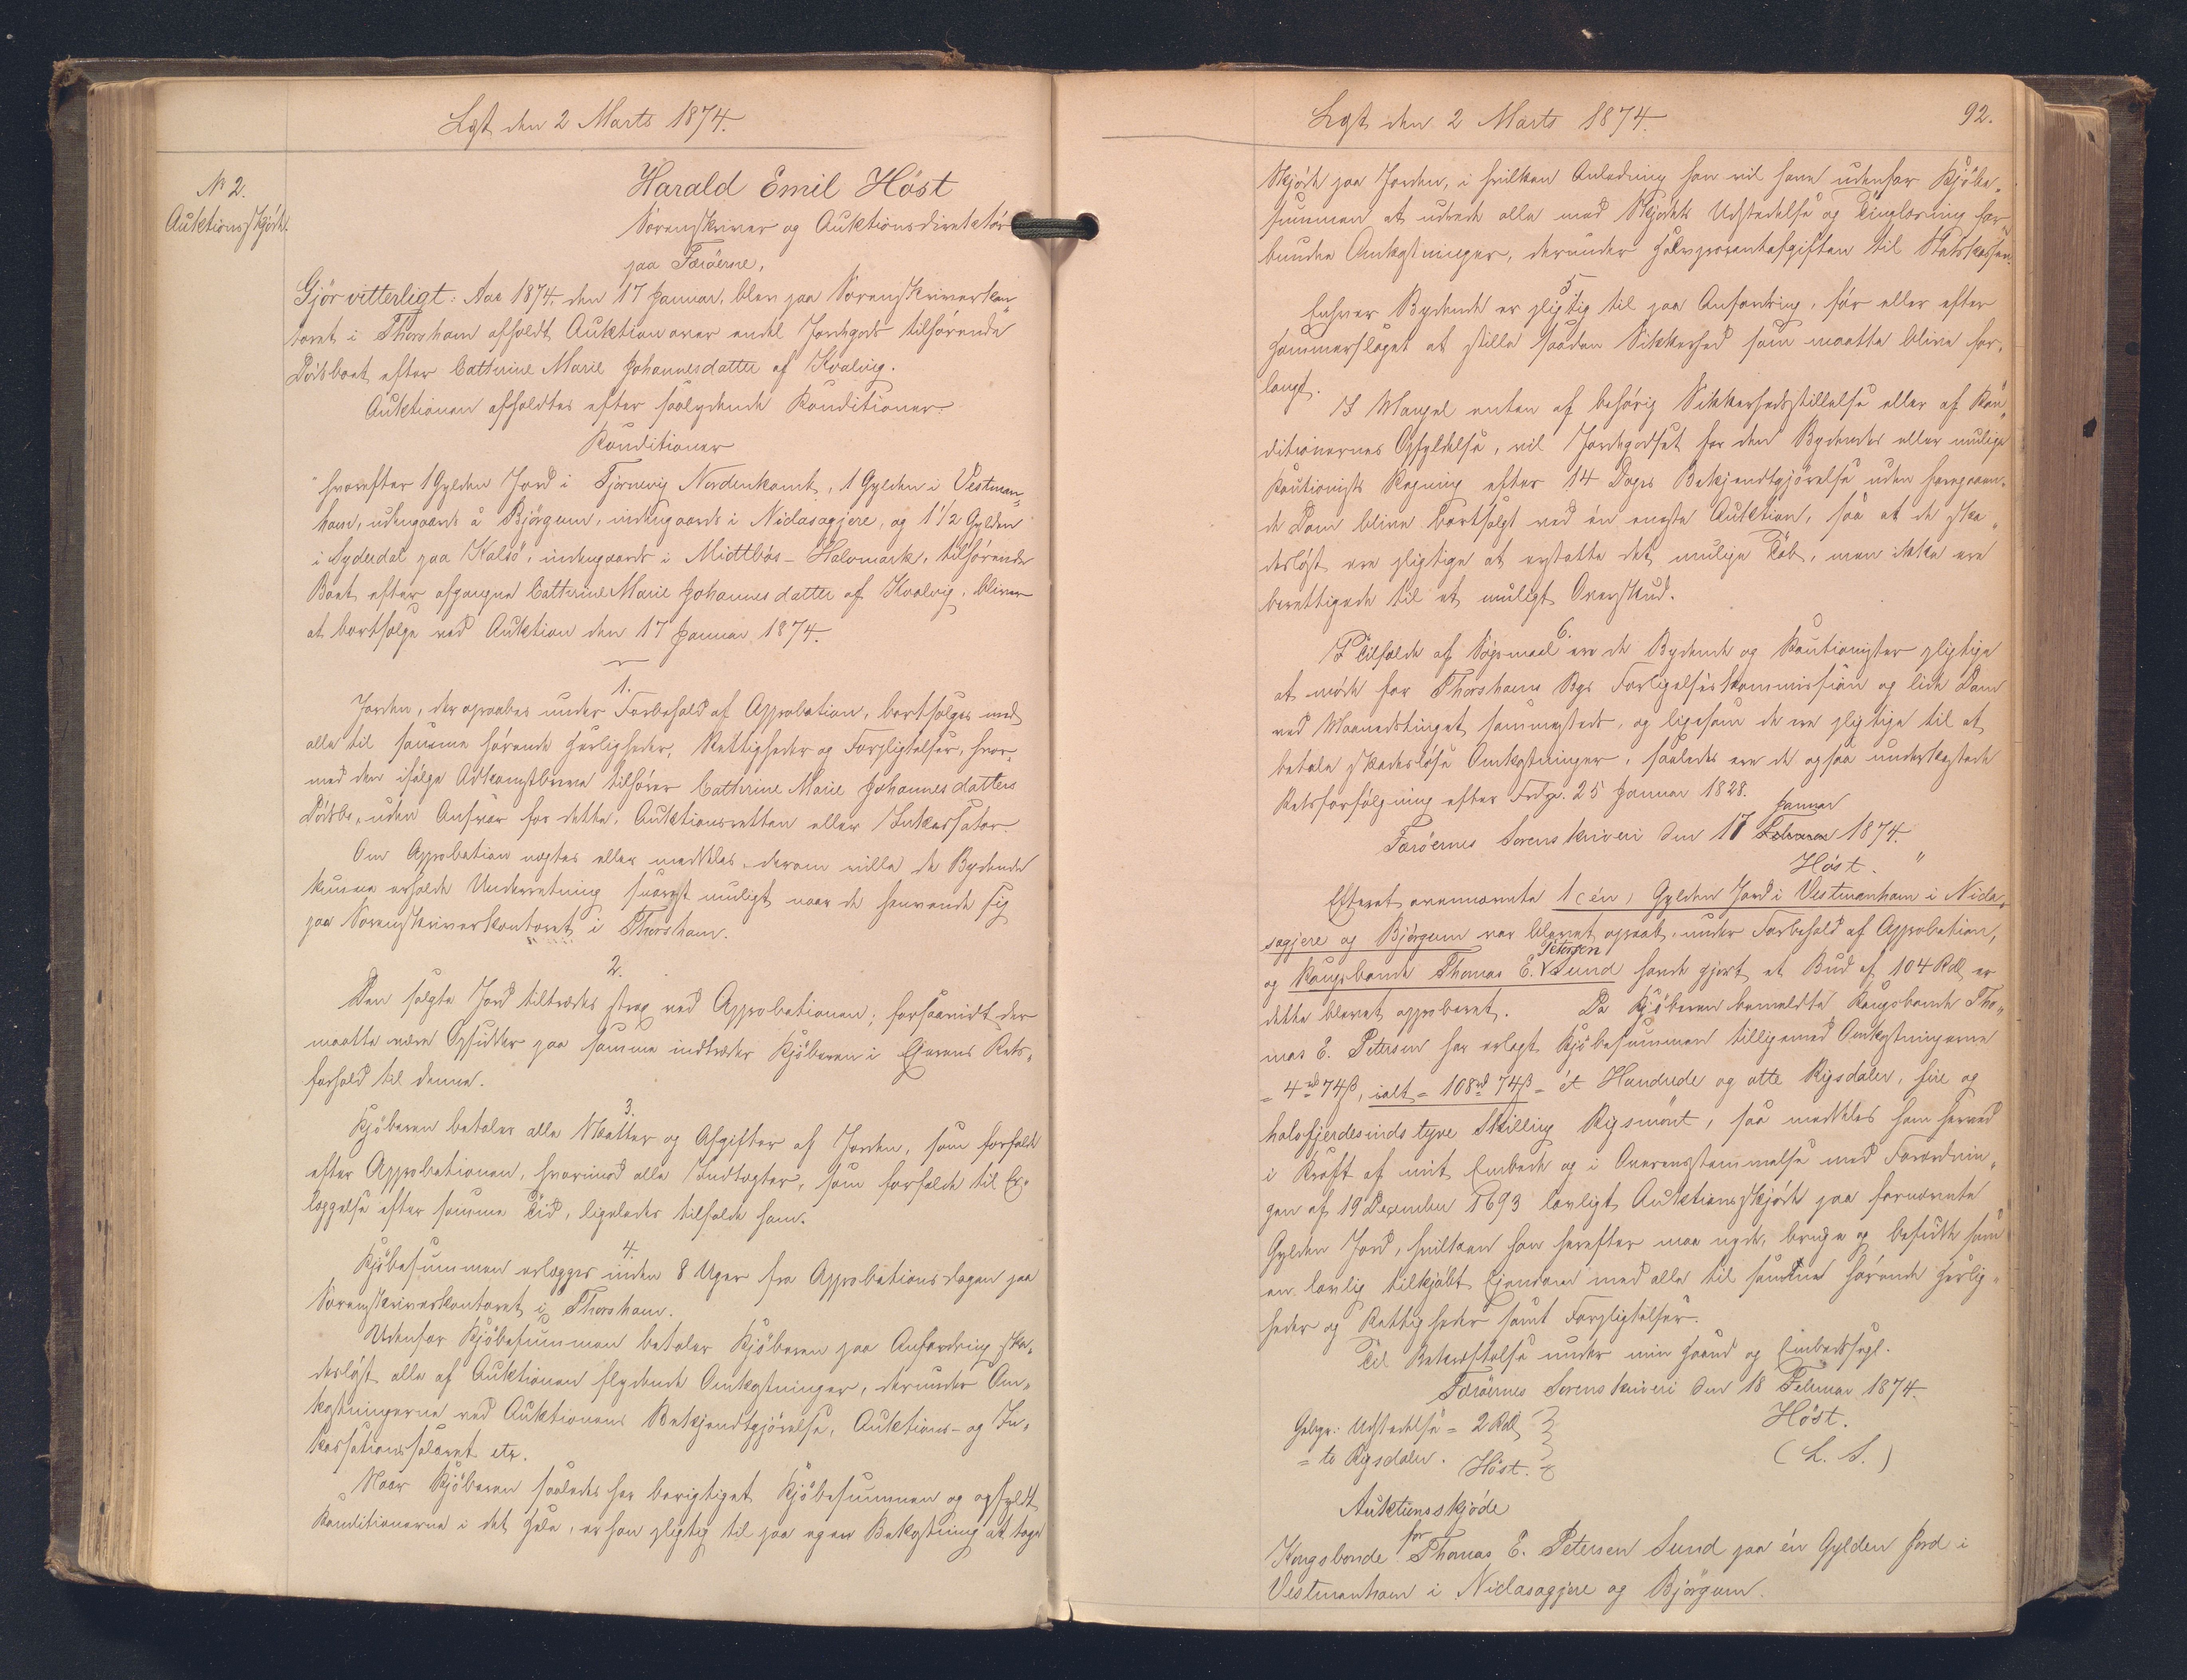 Læst den 2 Marts 1874.
No 2.
Auktionsskjöde.
Harald Emil Höst
Sorenskriver og Auktionsdirektör
paa Færöerne,
Gjör vitterligt: Aar 1874, den 17 Januar, blev paa Sorenskriverkon„
toret i Thorshavn afholdt Auktion over endel Jordegods tilhörende
Dödsboet efter Cathrine Marie Johannesdatter af Kvalvig.
Auktionen afholdtes efter saalydende Konditioner:
Konditioner
"hvorefter 1 Gylden Jord i Tjörnevig Nordenkamb, 1 Gylden i Vestman„
havn, udengaards å Björgum, indengaards i Niclasagjere, og 1 1/2 Gylden
i Syderdal paa Kalsö, indengaards i Midtbös-Halvmark, tilhörende
Boet efter afgangne Cathrine Marie Johannesdatter af Kvalvig, bliver
at bortsælge ved Auktion den 17 Januar 1874.
1.
Jorden, der opraabes under Forbehold af Approbation, bortsælges med
alle til samme hörende Herligheder, Rettigheder og Forpligtelser, hvor„
med den ifölge Adkomstbreve tilhörer Cathrine Marie Johannesdatters
Dödsbo, uden Ansvar for dette, Auktionsretten eller Inkassator.
Om Approbation nægtes eller meddeles, derom ville de Bydende
kunne erholde Underretning snarest muligt naar de henvende sig
paa Sorenskriverkontoret i Thorshavn.
2.
Den solgte Jord tiltrædes strax ved Approbationen; forsaavidt der
maatte være Opsidder paa samme indtræder Kjöberen i Ejerens Rets„
forhold til denne.
3.
Kjöberen betaler alle Skatter og Afgifter af Jorden, som forfalde
efter Approbationen, hvorimod alle Indtægter, som forfalde til Er„
læggelse efter samme Tid, ligeledes tilfalde ham.
4.
Kjöbesummen erlægges inden 8 Uger fra Approbationsdagen paa
Sorenskriverkontoret i Thorshavn.
Udenfor Kjöbesummen betaler Kjöberen paa Anfordring ska„
deslöst alle af Auktionen flydende Omkostninger, derunder Om„
kostningerne ved Auktionens Bekjendtgjörelse, Auktions- og In„
kassationssalæret etc.
Naar Kjöberen saaledes har berigtiget Kjöbesummen og opfyldt
Konditionerne i det Hele, er han pligtig til paa egen Bekostning at tage
Læst den 2 Marts 1874.
92.
Skjöde paa Jorden, i hvilken Anledning han vil have udenfor Kjöbe„
summen at udrede alle med Skjödets Udstedelse og Tinglæsning for„
bundne Omkostninger, derunder Halvprocentafgiften til Statskassen.
5.
Enhver Bydende er pligtig til paa Anfordring, för eller efter
Hammerslaget at stille saadan Sikkerhed som maatte blive for„
langt.
I Mangel enten af behörig Sikkerhedsstillelse eller af Kon„
ditionernes Opfyldelse, vil Jordegodset for den Bydendes eller mulige
Kautionists Regning efter 14 Dages Bekjendtgjörelse uden foregaaen„
de Dom blive bortsolgt ved én eneste Auktion, saa at de ska„
deslöst ere pligtige at erstatte det mulige Tab, men ikke ere
berettigede til et muligt Overskud.
6.
I Tilfælde af Sögsmaal ere de Bydende og Kautionister pligtige
at möde for Thorshavns Bys Forligelseskommission og lide Dom
ved Maanedstinget sammesteds, og ligesom de ere pligtige til at
betale skadeslöse Omkostninger, saaledes ere de ogsaa underkastede
Retsforfölgning efter Frdg. 25 Januar 1828.
Januar
Færöernes Sorenskriveri den 17 Februar 1874.
Höst. "
Efterat ovennævnte 1 (én) Gylden Jord i Vestmanhavn i Nicla„
sagjere og Björgum var blevet opraabt, under Forbehold af Approbation,
Petersen
og Kongsbonde Thomas E. Sund havde gjort et Bud af 104 Rdl, er
dette blevet approberet. Da Kjöberen bemeldte Kongsbonde Tho„
mas E. Petersen har erlagt Kjöbesummen tilligemed Omkostningerne
= 4 rd 74 ß, ialt = 108 rd 74 ß = ét Hundrede og otte Rigsdaler, fire og
halvfjerdesindstyve Skilling Rigsmönt, saa meddeles ham herved
i Kraft af mit Embede og i Overensstemmelse med Forordnin„
gen af 19 December 1693 lovligt Auktionsskjöde paa fornævnte
Gylden Jord, hvilken han herefter maa nyde, bruge og besidde som
en lovlig tilkjöbt Ejendom med alle til samme hörende Herlig„
heder og Rettigheder samt Forpligtelser.
Til Bekræftelse under min Haand og Embedssegl.
Færöernes Sorenskriveri den 18 Februar 1874.
Höst.
(L. S.)
Gebyr: Udstedelse = 2 Rdl
= to Rigsdaler. Höst.
Auktionsskjöde
for
Kongsbonde Thomas E. Petersen Sund paa én Gylden Jord i
Vestmanhavn i Niclasagjere og Björgum.